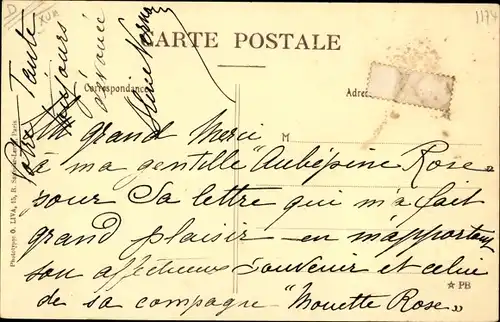 D
XVII
1174
CARTE POSTALE
Correspondance
Adre
M
Un grand Merci
à ma gentille "Aubépine Rose"
pour sa lettre qui m'a fait
grand plaisir — en m'apportant
son affectueux souvenir et celui
de sa compagne "Mouette Rose"
Votre Tante
toujours
dévouée
PB
Phototypie O. LIVA, 15, B. Paris.